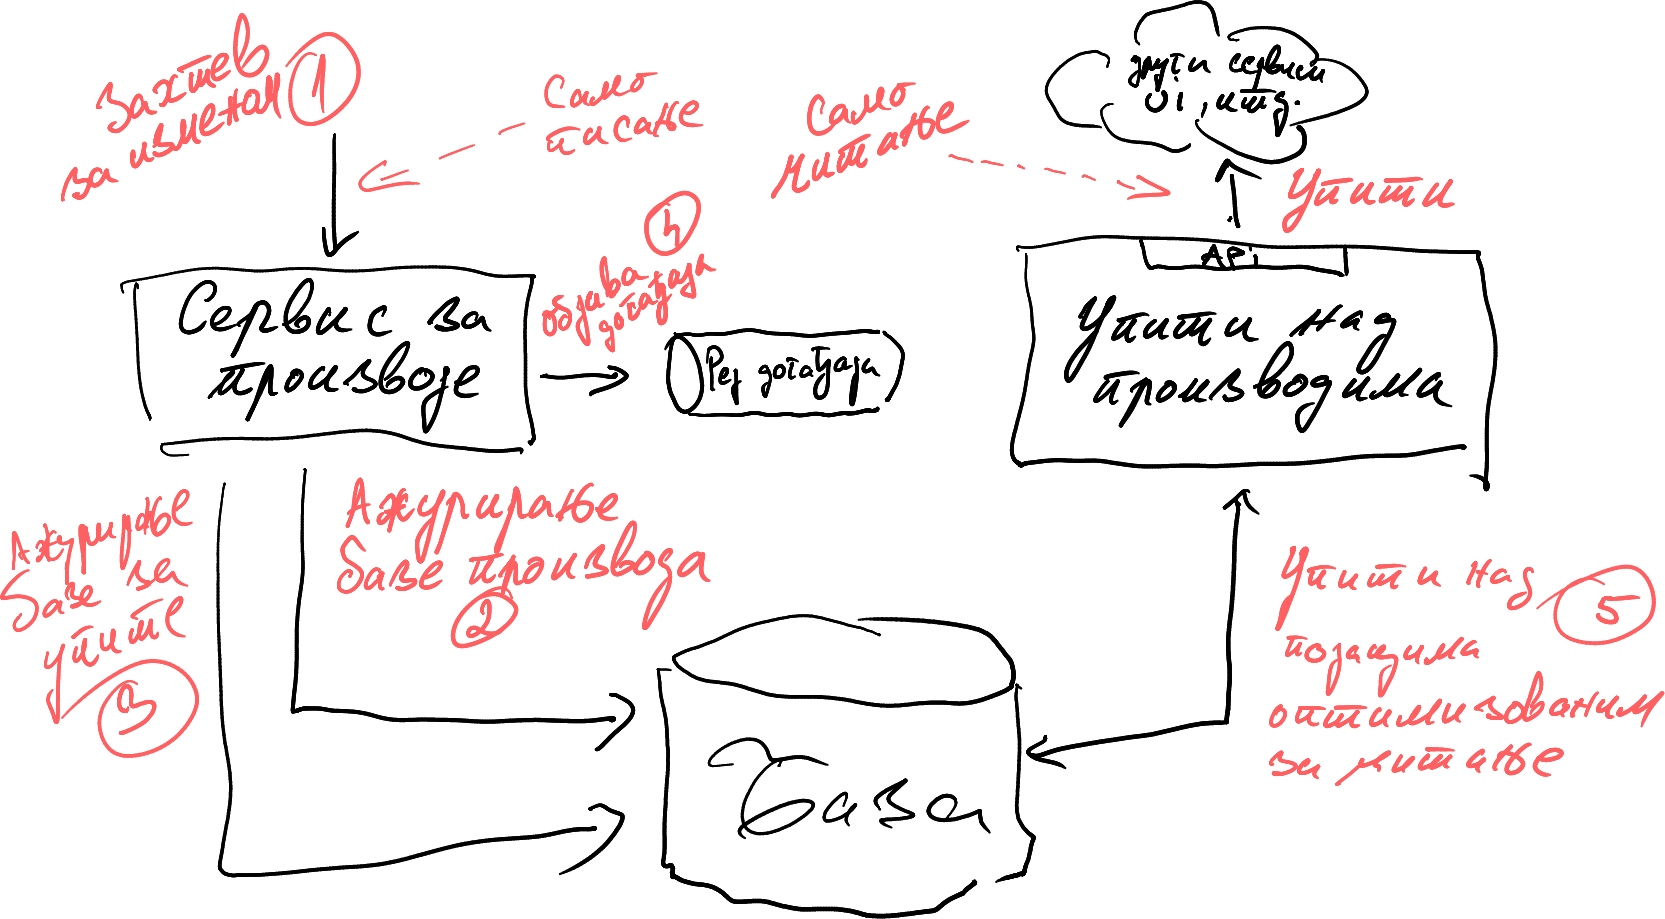 Захтев
за изменом
1
Само
писање
Само
читање
други сервиси
UI, итд.
Упити
API
4
објава
догађаја
Сервис за
производе
Ред догађаја
Упити над
производима
Ажурирње
базе за
упите
3
Ажурирање
базе производа
2
Упити над
5
подацима
оптимизованим
за читање
База